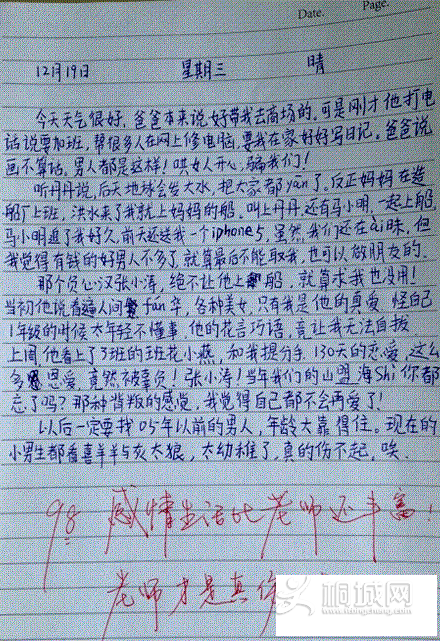 Date. Page.
12月19日 星期三 晴
今天天气很好,爸爸本来说好带我去商场的,可是刚才他打电
话说要加班,帮很多人在网上修电脑,要我在家好好写日记。爸爸说
画不算话,男人都是这样!哄女人开心,骗我们!
听丹丹说,后天地球会发大水,把大家都yān了,反正妈妈在造
船厂上班,洪水来了我就上妈妈的船。叫上丹丹,还有马小明,一起上船,
马小明追了我好久,前天还送我一个iphone5,虽然我们还在ai昧,但
我觉得有钱的好男人不多了,就算最后不能取我,也可以做朋友的。
那个负心汉张小涛,绝不让他上船,就算求我也没用!
当初他说看遍人间fán华,各种美女,只有我是他的真爱,怪自己
1年级的时候太年轻不懂事,他的花言巧语,竟让我无法自拔
上周他看上了3班的班花小燕,和我提分手,130天的恋爱,这么
多恩爱,竟然被辜负!张小涛!当年我们的山盟海Shi你都
忘了吗?那种背叛的感觉,我觉得自己都不会再爱了!
以后一定要找05年以前的男人,年龄大靠得住。现在的
小男生都看喜羊羊与灰太狼,太幼稚了,真的伤不起,唉.
98 感情生活比老师还丰富!
老师才是真伤
桐城网
www.itongcheng.com